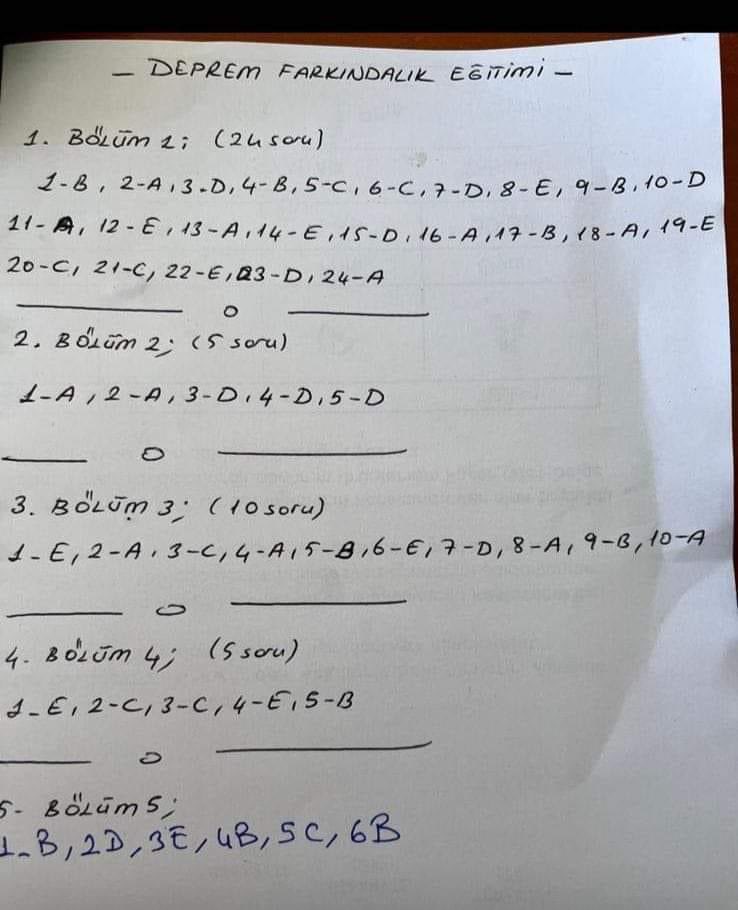 - DEPREM FARKINDALIK EĞİTİMİ -
1. BÖLÜM 1; (24 soru)
1-B, 2-A, 3-D, 4-B, 5-C, 6-C, 7-D, 8-E, 9-B, 10-D
11-A, 12-E, 13-A, 14-E, 15-D, 16-A, 17-B, 18-A, 19-E
20-C, 21-C, 22-E, 23-D, 24-A
2. BÖLÜM 2; (5 soru)
1-A, 2-A, 3-D, 4-D, 5-D
3. BÖLÜM 3; (10 soru)
1-E, 2-A, 3-C, 4-A, 5-B, 6-E, 7-D, 8-A, 9-B, 10-A
4. BÖLÜM 4; (5 soru)
1-E, 2-C, 3-C, 4-E, 5-B
5- BÖLÜM 5;
1-B, 2D, 3E, 4B, 5C, 6B